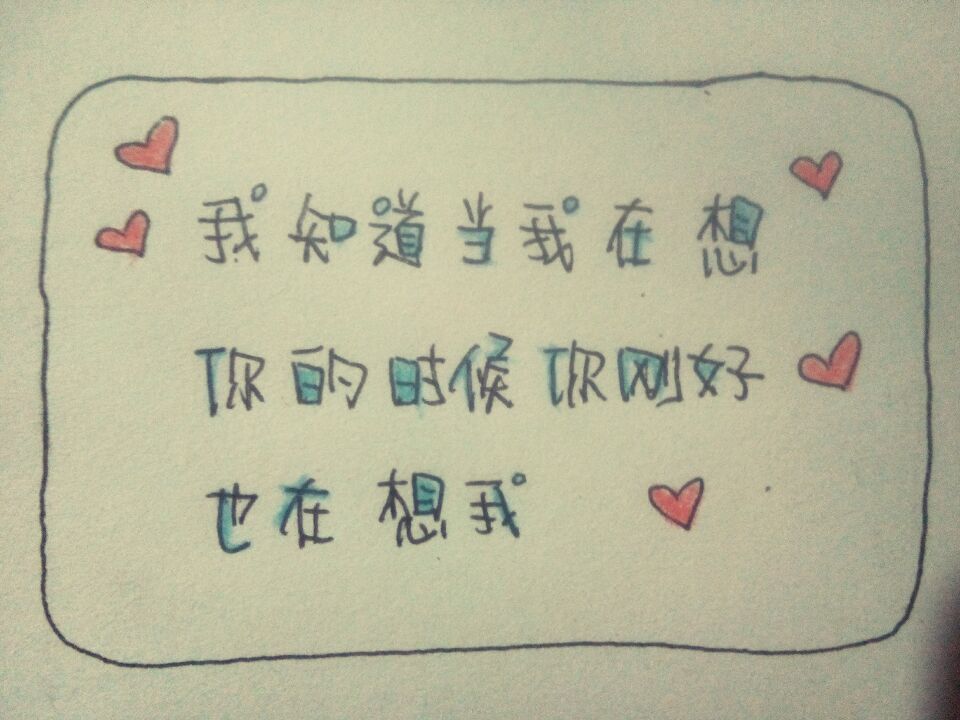 我知道当我在想
你的时候你刚好
也在想我